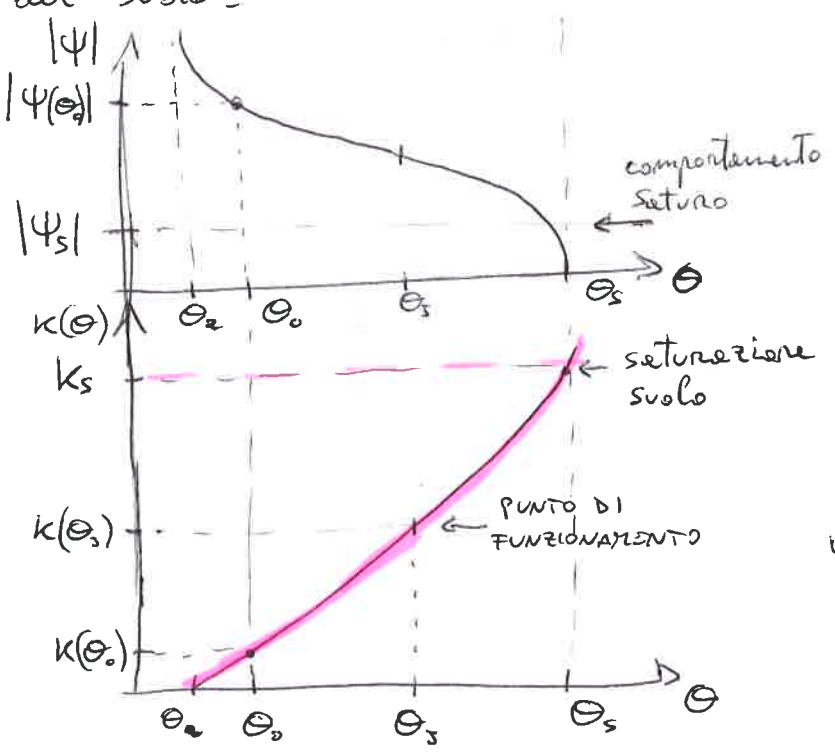 |Ψ|
|Ψ(Θ₀)|
comportamento
saturo
|Ψ_S|
Θ_r Θ₀ Θ_3 Θ_S Θ
K(Θ)
K_S
saturazione
suolo
K(Θ_3)
PUNTO DI
FUNZIONAMENTO
K(Θ₀)
Θ_r Θ₀ Θ_3 Θ_S Θ